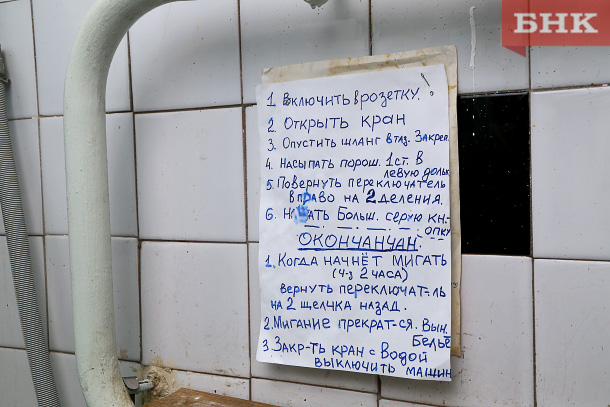 БНК
1. Включить в розетку.
2. Открыть кран
3. Опустить шланг в таз. Закреп.
4. Насыпать порош. 1ст. в
левую дольк
5. Повернуть переключатель
вправо на 2 деления.
6. Нажать Больш. серую кн-
опку
ОКОНЧАНЧАН.
1. Когда начнёт мигать
(ч-з 2 часа)
вернуть переключат-ль
на 2 щелчка назад.
2. Мигание прекрат-ся. Вын.
Бельё
3. Закр-ть кран с Водой
выключить машин